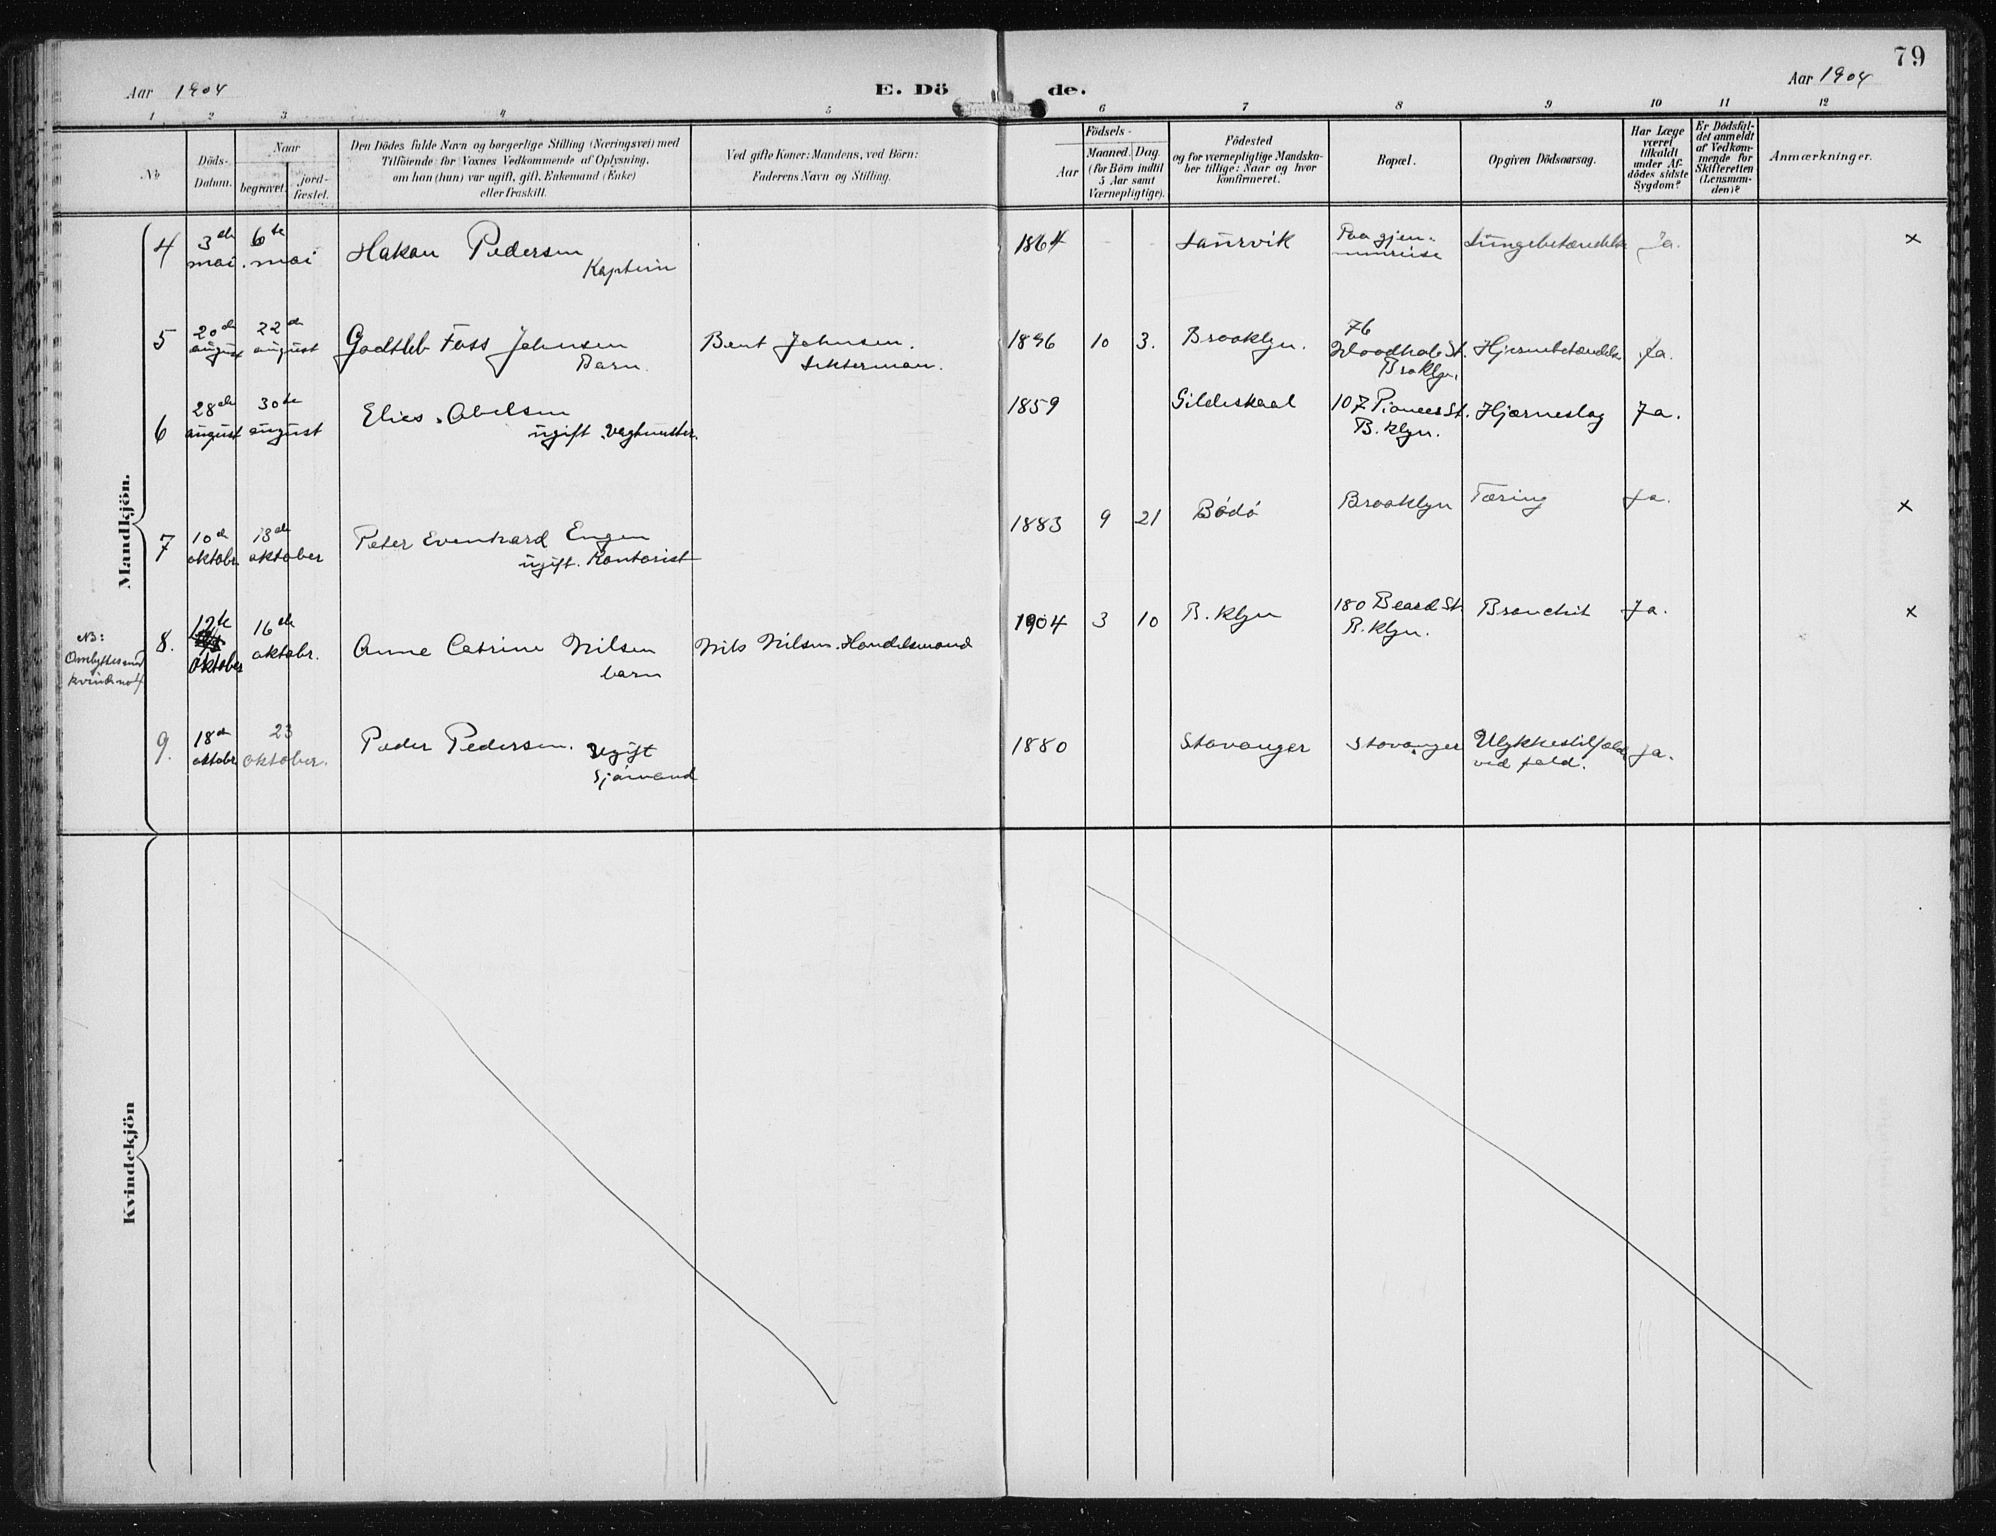 79
Aar 1904
E. Dö de.
Aar 1904
1 2 3 4 5 6 7 8 9 10 11 12
No
Döds-
Datum.
Naar
begravet.
jord-
fæstet.
Den Dödes fulde Navn og borgerlige Stilling (Næringsvei) med
Tilföiende for Voxnes Vedkommende af Oplysning,
om han (hun) var ugift, gift, Enkemand (Enke)
eller fraskilt.
Ved gifte Koner: Mandens, ved Börn:
Faderens Navn og Stilling.
Födsels-
Aar
Maaned. Dag.
(for Börn indtil
5 Aar samt
Værnepligtige).
Födested
og for værnepligtige Mandska-
ber tillige: Naar og hvor
konfirmeret.
Bopæl.
Opgiven Dödsaarsag.
Har Læge
været
tilkaldt
under Af-
dödes sidste
Sygdom?
Er Dödsfal-
det anmeldt
af Vedkom-
mende for
Skifteretten
(Lensman-
den)?
Anmærkninger.
Mandkjön.
4 3de mai. 6te mai Hakon Pedersen
Kaptein
1864 - - Laurvik Paa gjen-
nemreise
Lungebetændelse Ja. x
5 20de august 22de august Godtleb Foss Johnsen
Barn.
Bent Johnsen.
1896 10 3. Brooklyn. 76
St.
Broklyn.
Hjernebetændelse Ja.
6 28de august 30te august Elies Abelsen
ugift
1859 Gildeskaal 107 Pioneer St.
B.klyn.
Hjærneslag Ja.
7 10de oktobr. 13de oktober Peter Evenhard Engen
ugift. Kontorist
1883 9 21 Bödö Brooklyn Tæring Ja. x
NB:
Ombyttes med
kvinde no
8. 12te oktober 16de oktobr. Anne Catrine Nilsen
barn
Nils Nilsen. Handelsmand
1904 3 10 B.klyn 180 Beard St.
B.klyn.
Bronchit Ja. x
9. 18de oktobr 23 oktober. Peder Pedersen. Ugift
Sjömand
1880 Stavanger Stavanger Ulykkestilfælde
ved fald.
Ja.
Kvindekjön